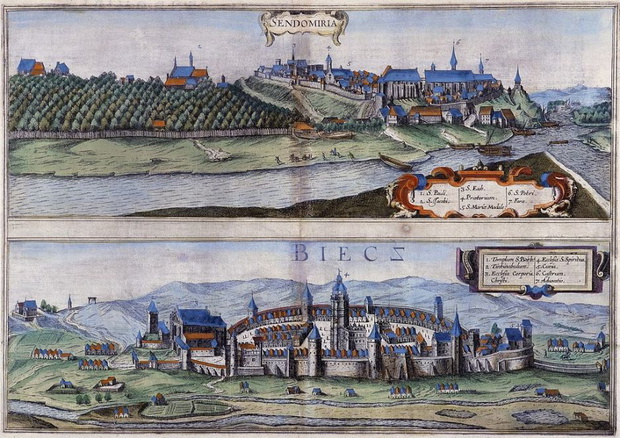 SENDOMIRIA
1. S. Pauli.
2. S. Jacobi.
3. S. Kab.
4. Prætorium.
5. S. Maria Magdale
6. S. Petri.
7. Fara.
BIECZ
1. Templum S. Petri
2. Tintinabulum.
3. Ecclesia Corporis
Christi.
4. Ecclesia S. Spiritus
5. Curia.
6. Castrum.